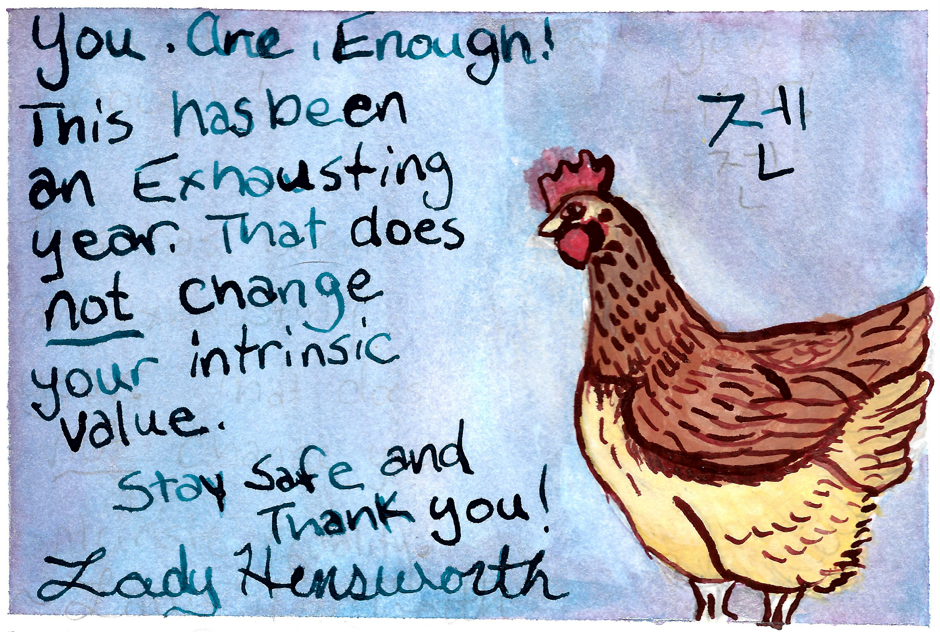 You. Are. Enough!
This has been
an Exhausting
year. That does
not change
your intrinsic
value.
Stay Safe and
Thank you!
Lady Hensworth
젠